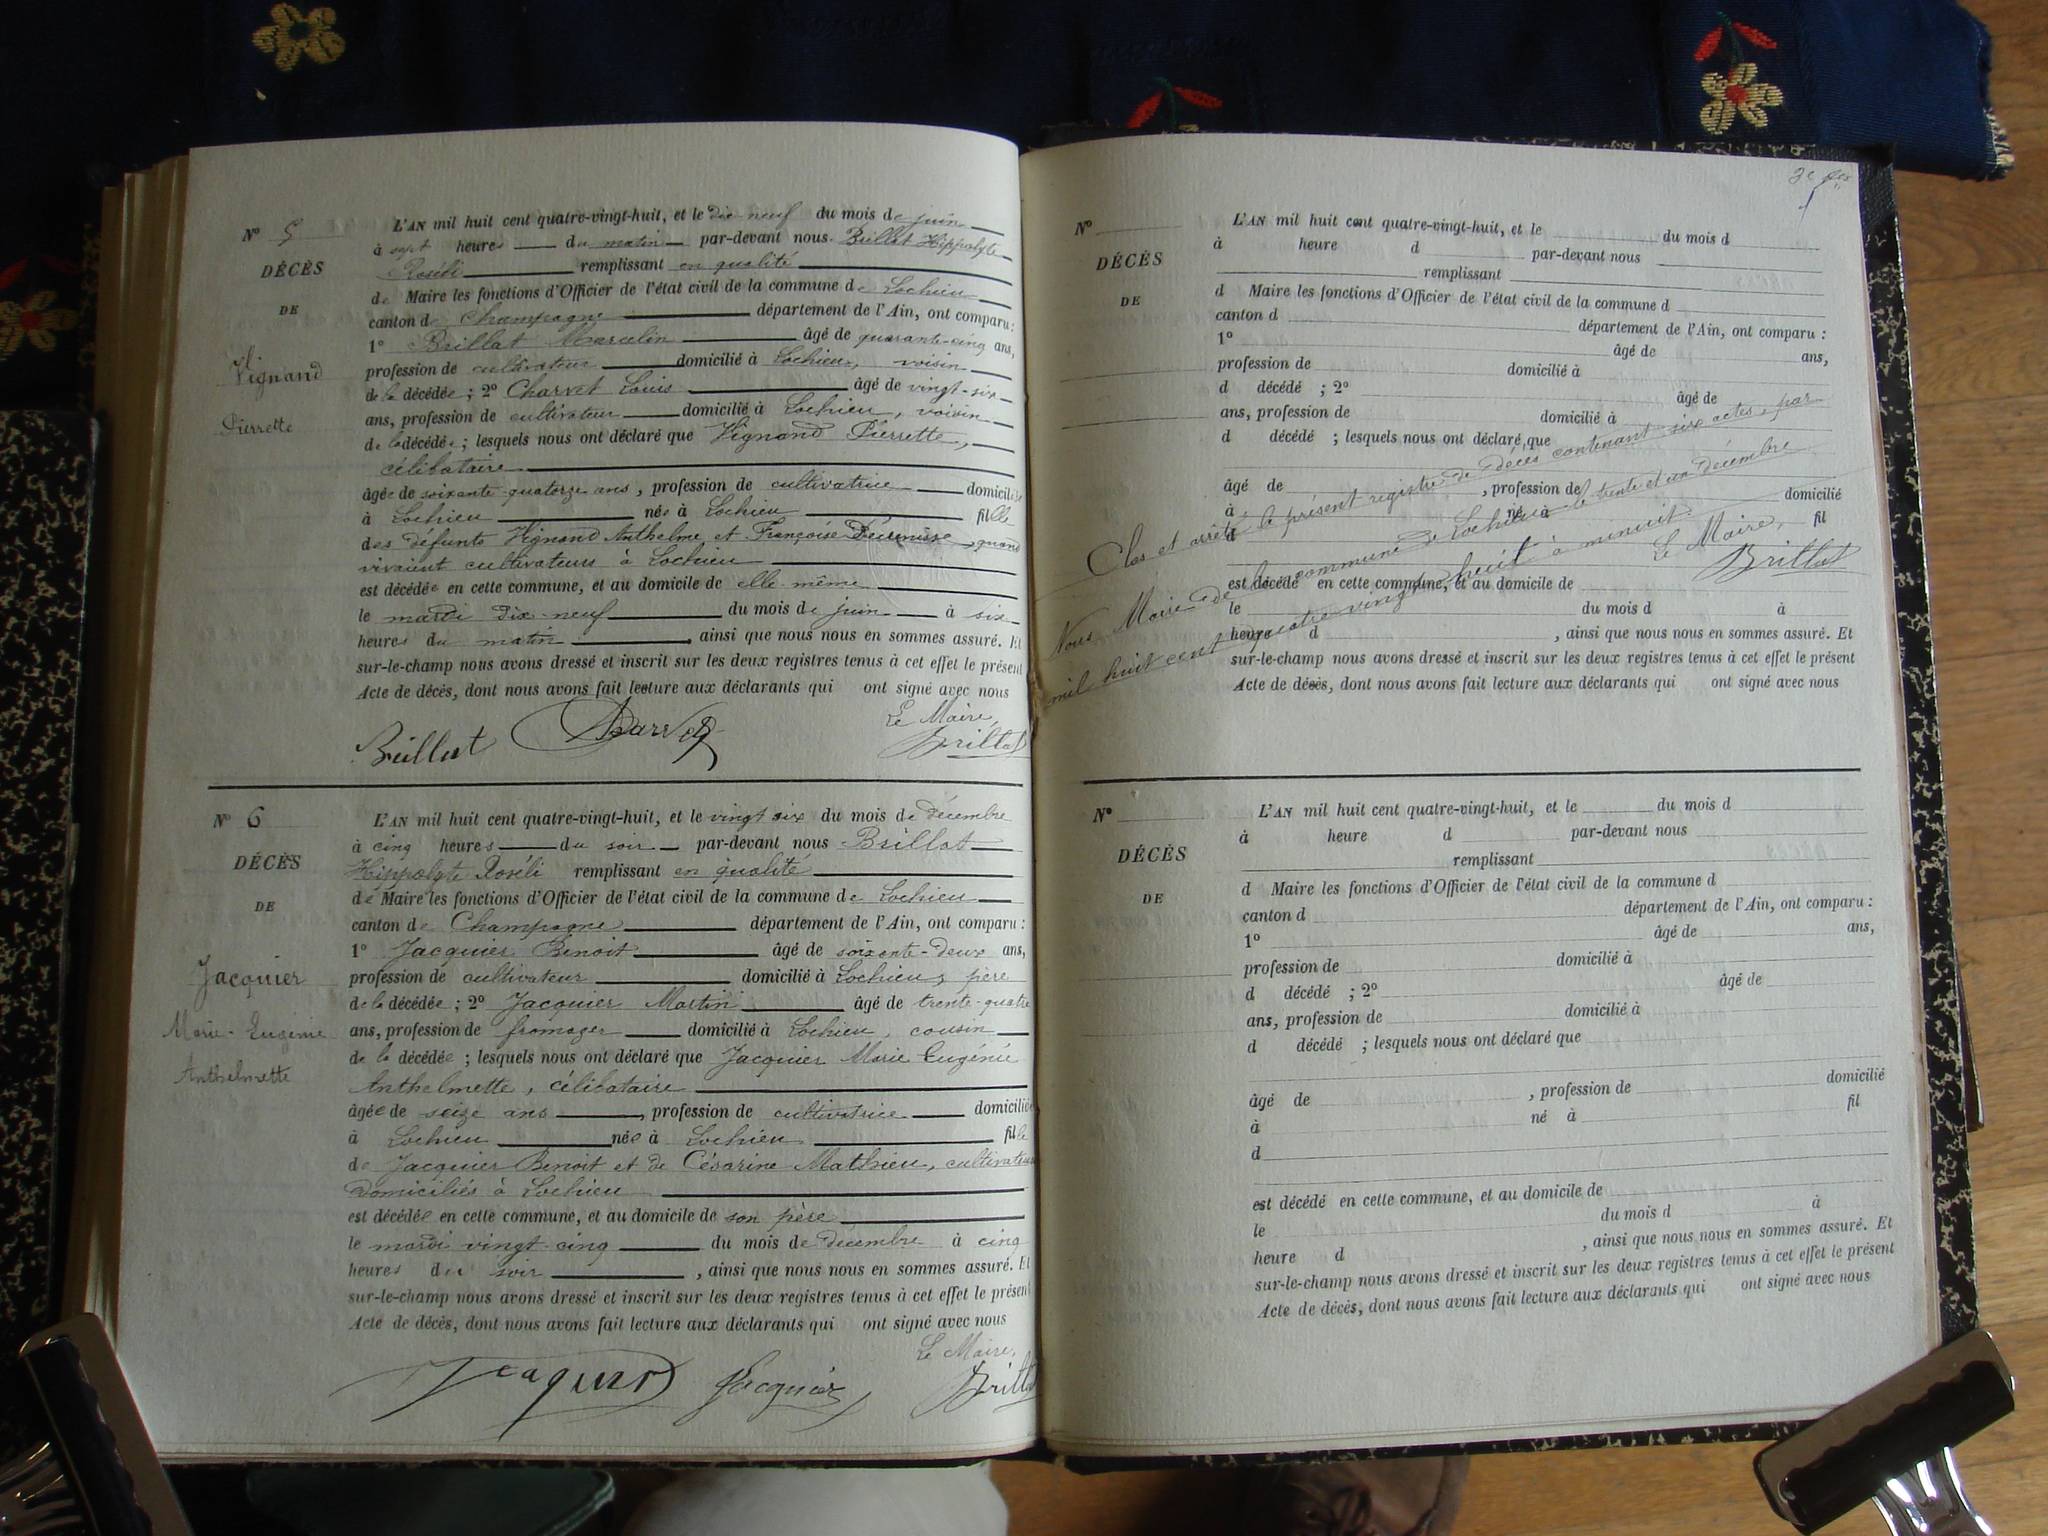 N° 5
DÉCÈS
DE
Vignand
Pierrette
L'AN mil huit cent quatre-vingt-huit, et le dix-neuf du mois de juin
à sept heures du matin par-devant nous Brillat Hippolyte
Roséli remplissant en qualité
de Maire les fonctions d'Officier de l'état civil de la commune de Lochieu
canton de Champagne département de l'Ain, ont comparu :
1° Brillat Marcelin âgé de quarante-cinq ans,
profession de cultivateur domicilié à Lochieu, voisin
de la décédée ; 2° Charvet Louis âgé de vingt-six
ans, profession de cultivateur domicilié à Lochieu, voisin
de la décédée ; lesquels nous ont déclaré que Vignand Pierrette,
célibataire
âgée de soixante-quatorze ans, profession de cultivatrice domiciliée
à Lochieu née à Lochieu fille
des défunts Vignand Anthelme et Françoise quand
vivaient cultivateurs à Lochieu
est décédée en cette commune, et au domicile de elle-même
le mardi dix-neuf du mois de juin à six
heures du matin, ainsi que nous nous en sommes assuré. Et
sur-le-champ nous avons dressé et inscrit sur les deux registres tenus à cet effet le présent
Acte de décès, dont nous avons fait lecture aux déclarants qui ont signé avec nous
Le Maire,
Brillat Charvet Brillat
N° 6
DÉCÈS
DE
Jacquier
Marie-Eugénie
Anthelmette
L'AN mil huit cent quatre-vingt-huit, et le vingt six du mois de décembre
à cinq heures du soir par-devant nous Brillat
Hippolyte Roséli remplissant en qualité
de Maire les fonctions d'Officier de l'état civil de la commune de Lochieu
canton de Champagne département de l'Ain, ont comparu :
1° Jacquier Benoit âgé de soixante-deux ans,
profession de cultivateur domicilié à Lochieu, père
de la décédée ; 2° Jacquier Martin âgé de trente-quatre
ans, profession de fromager domicilié à Lochieu, cousin
de la décédée ; lesquels nous ont déclaré que Jacquier Marie Eugénie
Anthelmette, célibataire
âgée de seize ans, profession de cultivatrice domiciliée
à Lochieu née à Lochieu fille
de Jacquier Benoit et de Césarine Mathieu, cultivateurs
domiciliés à Lochieu
est décédée en cette commune, et au domicile de son père
le mardi vingt-cinq du mois de décembre à cinq
heures du soir, ainsi que nous nous en sommes assuré. Et
sur-le-champ nous avons dressé et inscrit sur les deux registres tenus à cet effet le présent
Acte de décès, dont nous avons fait lecture aux déclarants qui ont signé avec nous
Le Maire,
Jacquier Jacquier Brillat
N°
DÉCÈS
DE
L'AN mil huit cent quatre-vingt-huit, et le du mois d
à heure d par-devant nous
remplissant
d Maire les fonctions d'Officier de l'état civil de la commune d
canton d département de l'Ain, ont comparu :
1° âgé de ans,
profession de domicilié à
d décédé ; 2° âgé de
ans, profession de domicilié à
d décédé ; lesquels nous ont déclaré que
âgé de , profession de domicilié
à né à fil
d
est décédé en cette commune, et au domicile de
le du mois d à
heure d , ainsi que nous nous en sommes assuré. Et
sur-le-champ nous avons dressé et inscrit sur les deux registres tenus à cet effet le présent
Acte de décès, dont nous avons fait lecture aux déclarants qui ont signé avec nous
Clos et arrêté le présent registre de décès contenant six actes, par
Nous, Maire de la commune de Lochieu le trente et un décembre
mil huit cent quatre vingt huit à minuit.
Le Maire,
Brillat
N°
DÉCÈS
DE
L'AN mil huit cent quatre-vingt-huit, et le du mois d
à heure d par-devant nous
remplissant
d Maire les fonctions d'Officier de l'état civil de la commune d
canton d département de l'Ain, ont comparu :
1° âgé de ans,
profession de domicilié à
d décédé ; 2° âgé de
ans, profession de domicilié à
d décédé ; lesquels nous ont déclaré que
âgé de , profession de domicilié
à né à fil
d
est décédé en cette commune, et au domicile de
le du mois d à
heure d , ainsi que nous nous en sommes assuré. Et
sur-le-champ nous avons dressé et inscrit sur les deux registres tenus à cet effet le présent
Acte de décès, dont nous avons fait lecture aux déclarants qui ont signé avec nous